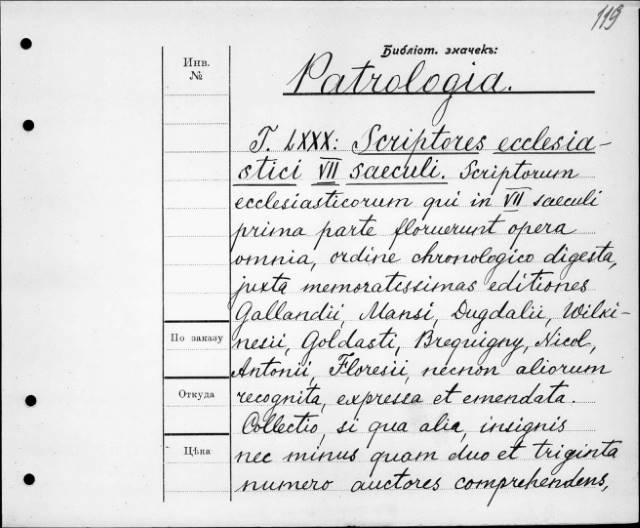 119
Библіот. значекъ:
Patrologia.
Инв.
№
T. LXXX: Scriptores ecclesia-
stici VII saeculi. Scriptorum
ecclesiasticorum qui in VII saeculi
prima parte floruerunt opera
omnia, ordine chronologico digesta,
juxta memoratissimas editiones
Gallandii, Mansi, Dugdalii, Wilki-
nesii, Goldasti, Brequigny, Nicol,
Antonii, Floresii, necnon aliorum
recognita, expressa et emendata.
Collectio, si qua alia, insignis
nec minus quam duo et triginta
numero auctores comprehendens,
По заказу
Откуда
Цѣна